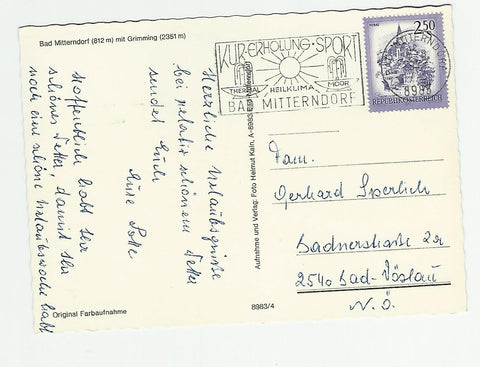 Bad Mitterndorf (812 m) mit Grimming (2351 m)
KUR·ERHOLUNG·SPORT
THERMAL HEILKLIMA MOOR
BAD MITTERNDORF
2.50
REPUBLIK ÖSTERREICH
Herzliche Urlaubsgrüße
bei relativ schönem Wetter
sendet Euch
Hoffentlich habt Ihr
schönes Wetter, damit Ihr
noch eine schöne Urlaubswoche habt
Fam.
Gerhard Sperlich
Badnerstraße 2a
2540 Bad-Vöslau
N.Ö.
Aufnahme und Verlag: Foto Helmut Kain, A-8983
Original Farbaufnahme
8983/4